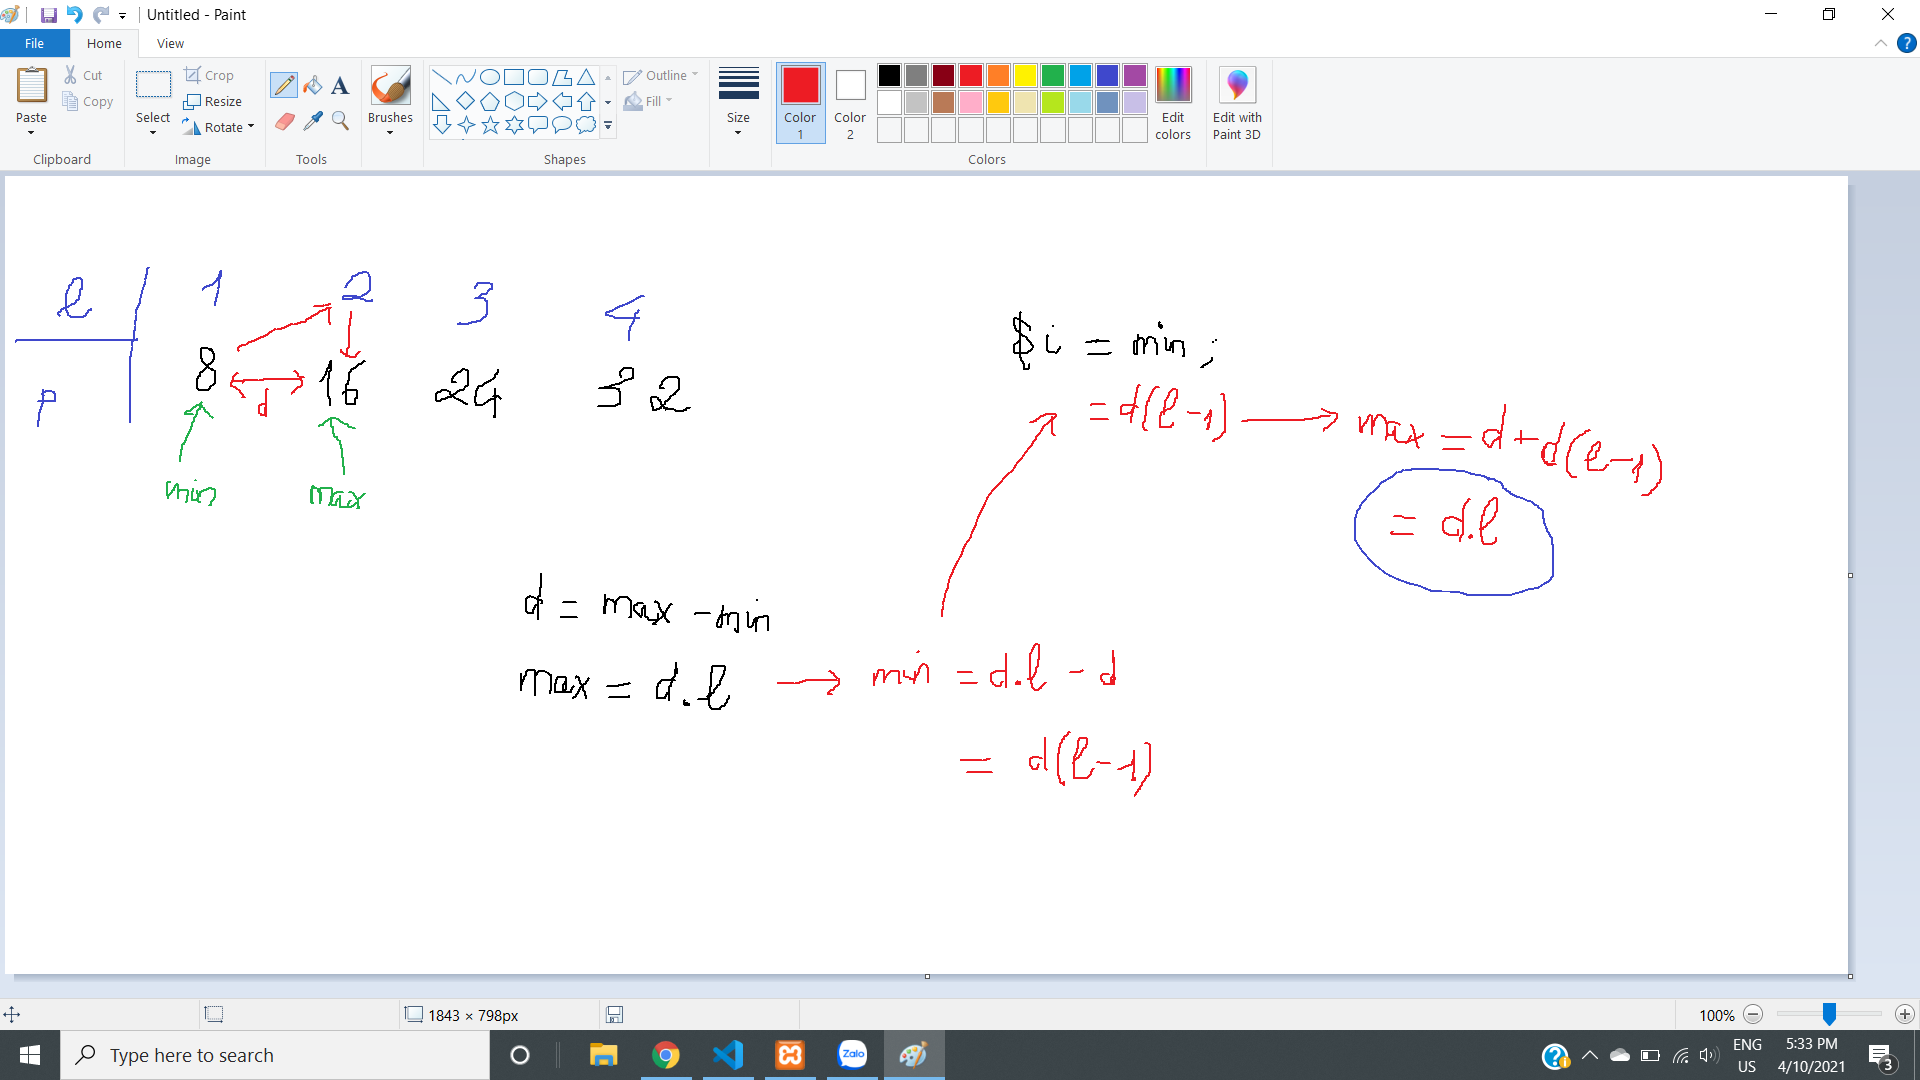 Untitled - Paint
File Home View
Paste Cut Copy Clipboard
Select Crop Resize Rotate Image
Tools
Brushes
Outline Fill Shapes
Size
Color 1 Color 2 Edit colors Colors
Edit with Paint 3D
l 1 2 3 4
p 8 16 24 32
d
min max
$i = min;
= d(l-1) max = d+d(l-1)
= d.l
d = max - min
max = d.l min = d.l - d
= d(l-1)
1843 × 798px 100%
Type here to search
Zalo
ENG US
5:33 PM
4/10/2021
3